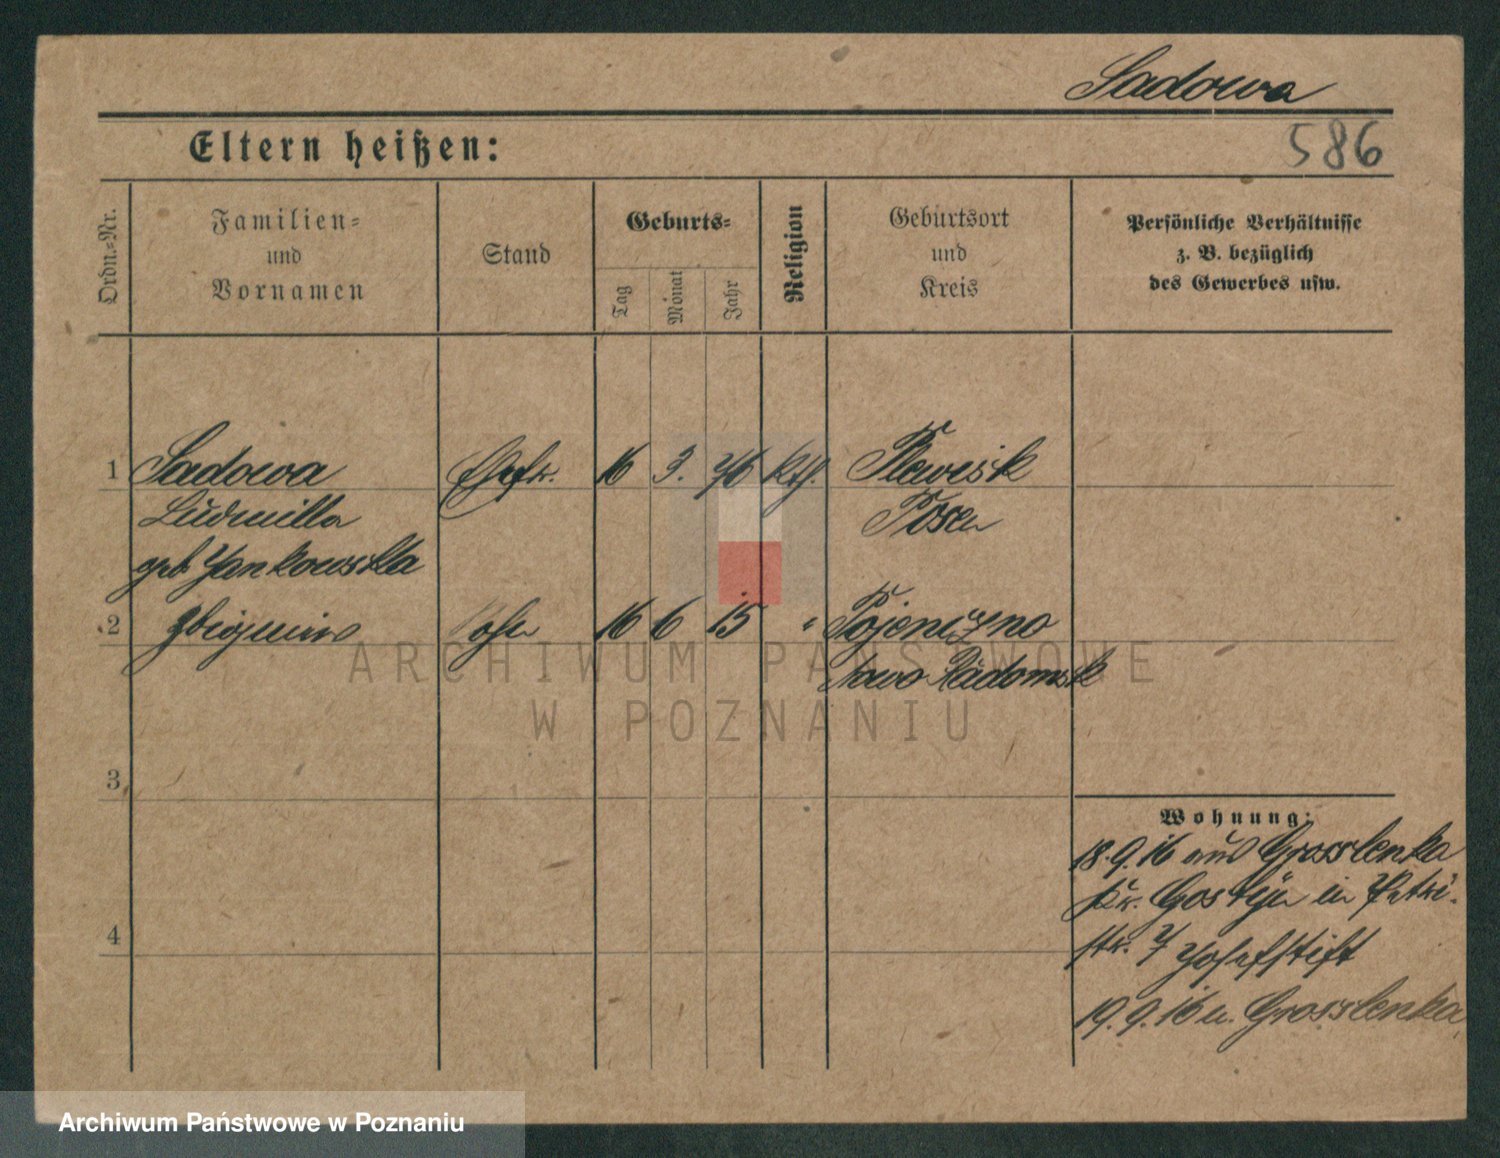 Sadowa
586
Eltern heißen:
Ordn.-Nr.
Familien-
und
Vornamen
Stand
Geburts-
Tag
Monat
Jahr
Religion
Geburtsort
und
Kreis
Persönliche Verhältnisse
z. B. bezüglich
des Gewerbes usw.
1 Sadowa Ehefr. 16 3. 76 kth. Plewisk
Ludmilla Posen
geb Yankowska
2 Zbigniew Sohn 16 6 15 " Pojeniczno
Nowo Radomsk
3
4
Wohnung:
18.9.16 aus Grosslenka
Kr. Gostyn in Petri-
str. 7 Josefstift
19.9.16 n. Grosslenka
ARCHIWUM PAŃSTWOWE
W POZNANIU
Archiwum Państwowe w Poznaniu